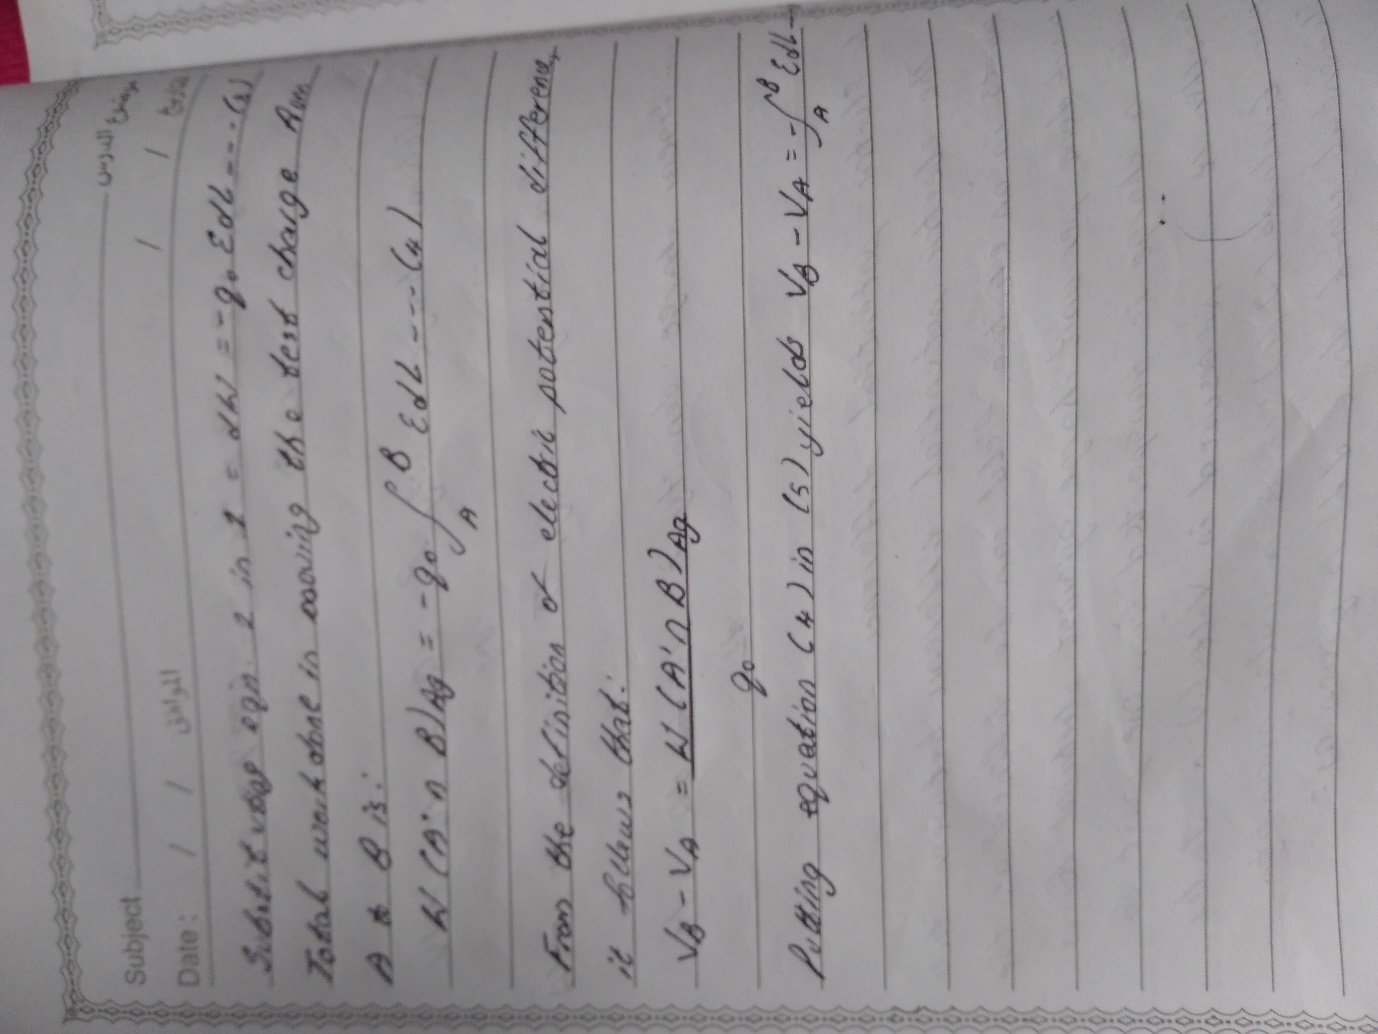 Subject موضوع الدرس
Date: / / الموافق / / التاريخ
Substitute eqn. 2 in 1 = dW = -q₀ Edl --- (3)
Total workdone in moving the test charge from
A to B is:
W (A'n B)Ag = -q₀ ∫ᴬᴮ Edl --- (4)
From the definition of electric potential difference,
it follows that:
VB - VA = W (A'n B)Ag
q₀
Putting equation (4) in (5) yields VB - VA = -∫ᴬᴮ Edl --